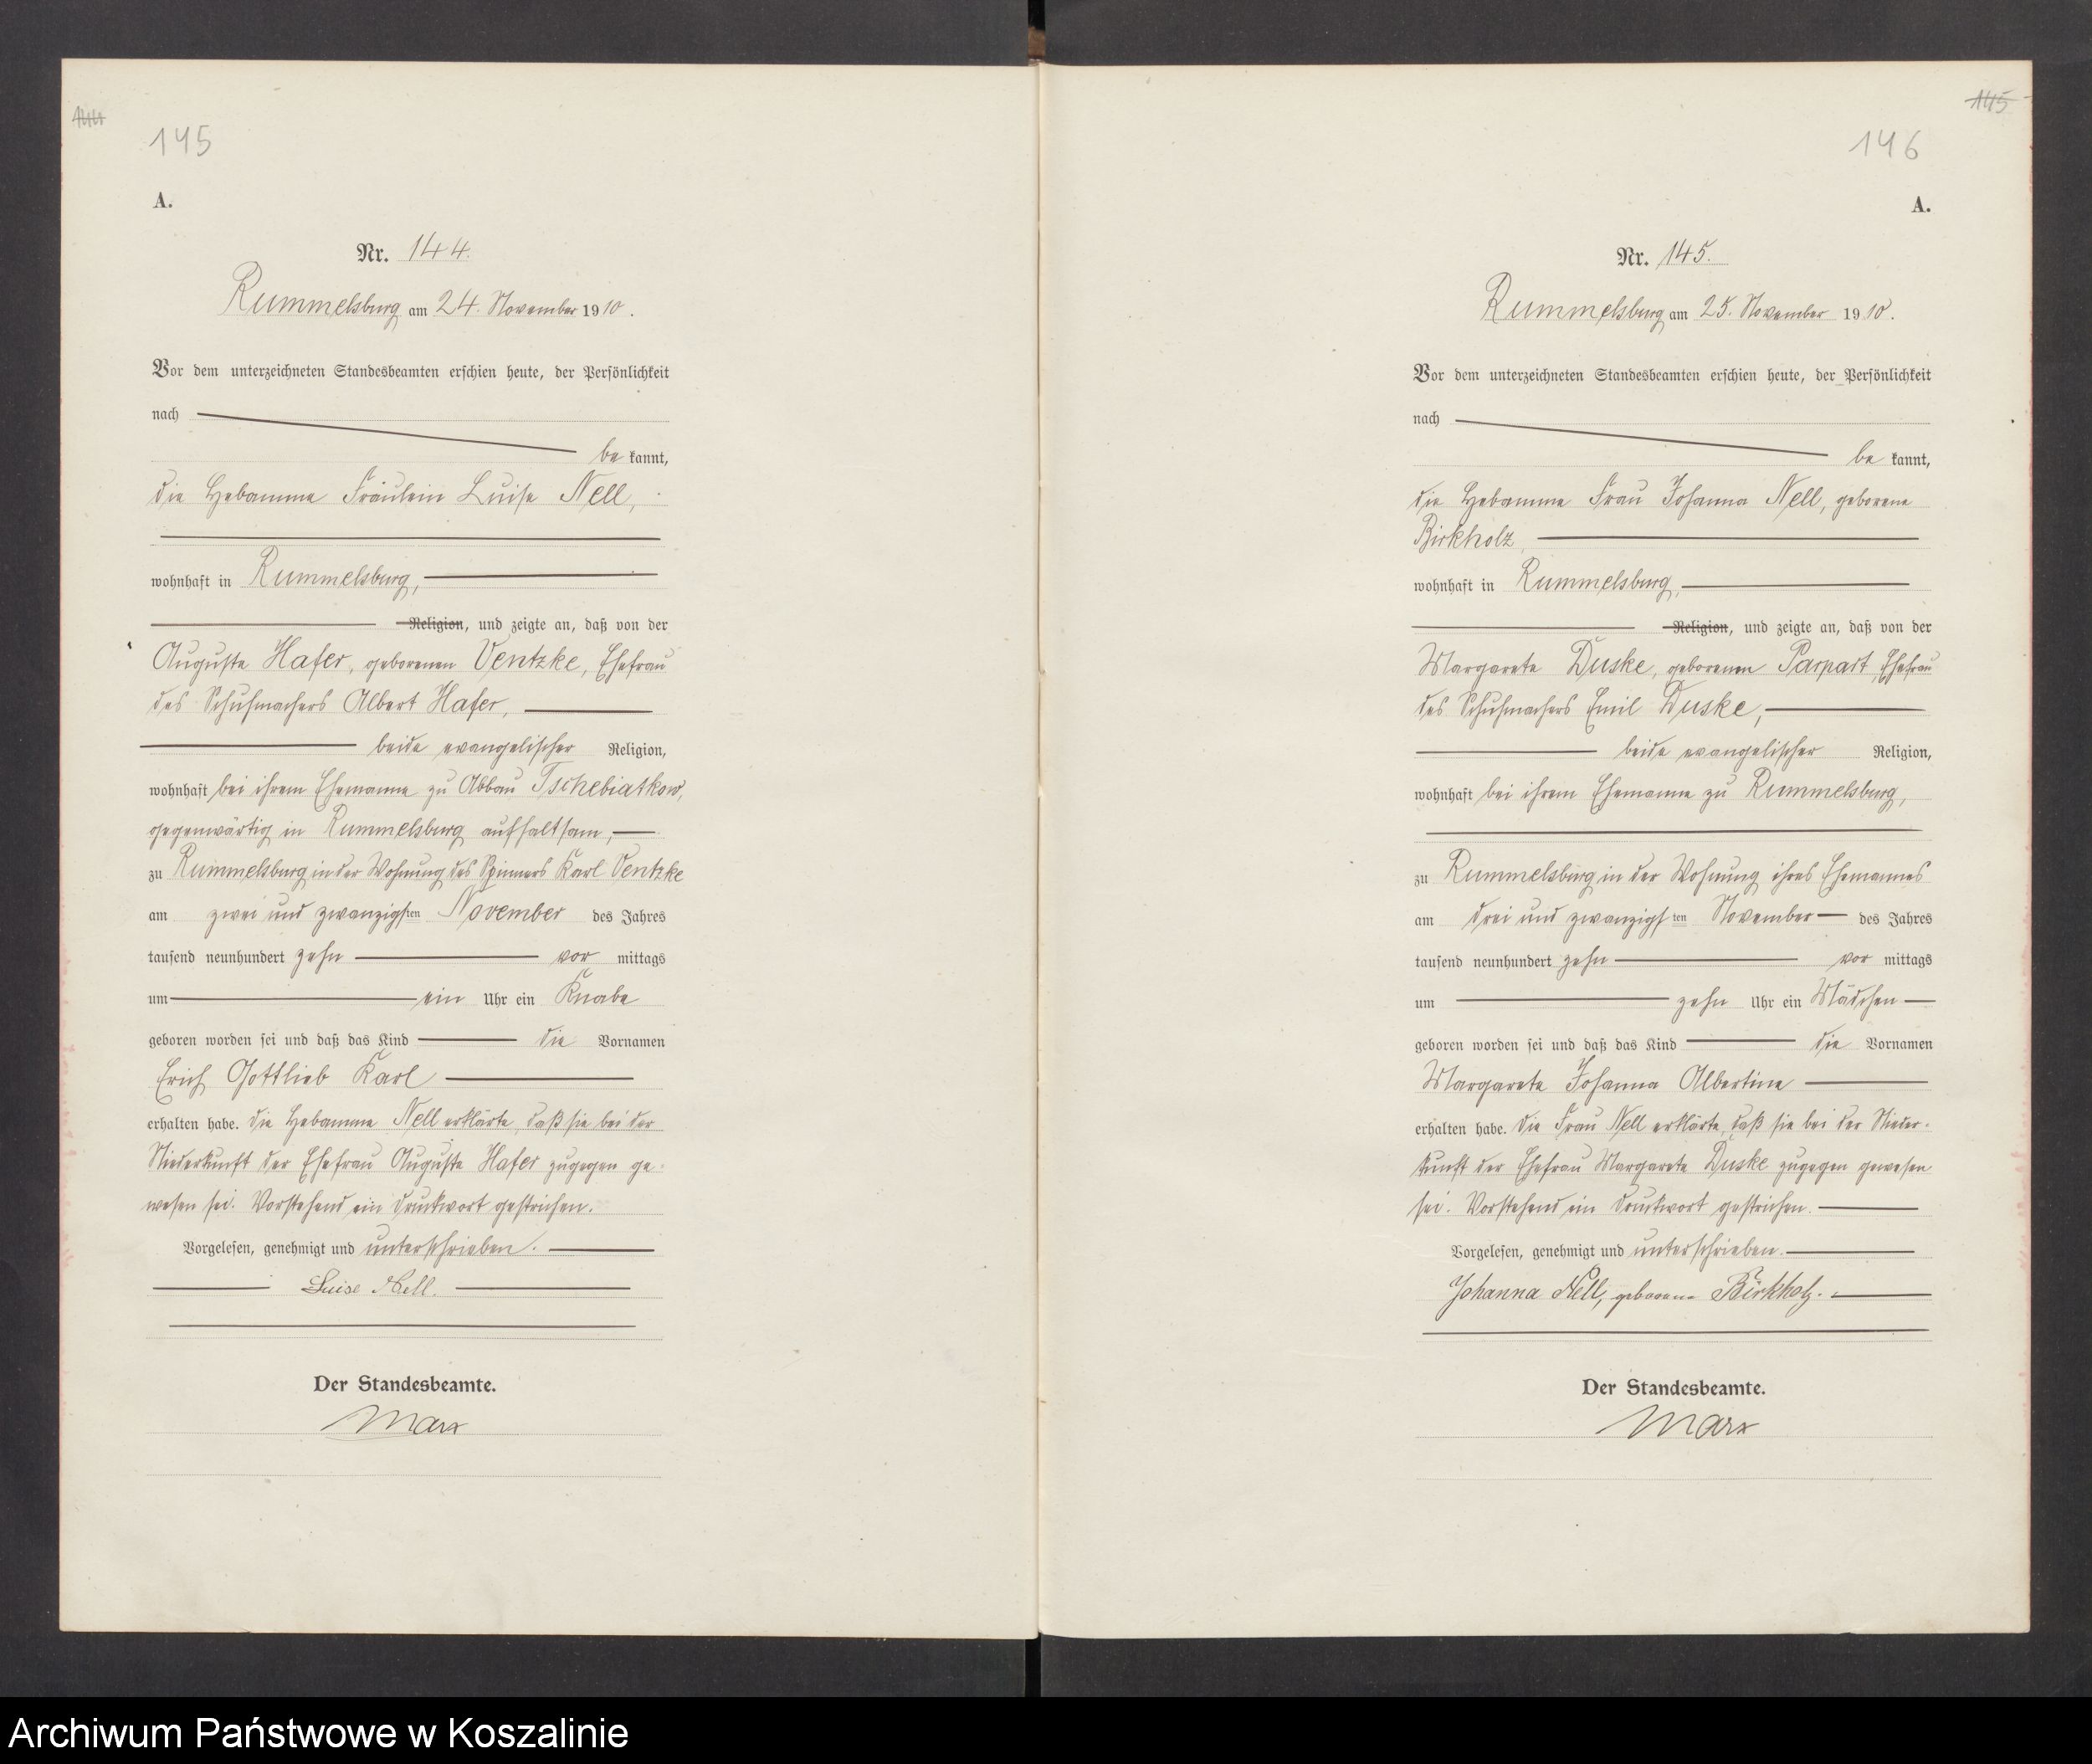 144
145
A.
Nr. 144.
Rummelsburg am 24. November 1910.
Vor dem unterzeichneten Standesbeamten erschien heute, der Persönlichkeit
nach
be kannt,
die Hebamme Fräulein Luise Nell,
wohnhaft in Rummelsburg,
Religion, und zeigte an, daß von der
Auguste Hafer, geborenen Ventzke, Ehefrau
des Schuhmachers Albert Hafer,
beide evangelischer Religion,
wohnhaft bei ihrem Ehemanne zu Abbau Tschebiatkow,
gegenwärtig in Rummelsburg aufhaltsam,
zu Rummelsburg in der Wohnung des Spinners Karl Ventzke
am zwei und zwanzigsten November des Jahres
tausend neunhundert zehn vor mittags
um ein Uhr ein Knabe
geboren worden sei und daß das Kind die Vornamen
Erich Gottlieb Karl
erhalten habe. Die Hebamme Nell erklärte, daß sie bei der
Niederkunft der Ehefrau Auguste Hafer zugegen ge-
wesen sei. Vorstehend ein Druckwort gestrichen.
Vorgelesen, genehmigt und unterschrieben.
Luise Nell.
Der Standesbeamte.
Marx
145
146
A.
Nr. 145.
Rummelsburg am 25. November 1910.
Vor dem unterzeichneten Standesbeamten erschien heute, der Persönlichkeit
nach
be kannt,
die Hebamme Frau Johanna Nell, geborene
Birkholz,
wohnhaft in Rummelsburg,
Religion, und zeigte an, daß von der
Margarete Duske, geborenen Parpart, Ehefrau
des Schuhmachers Emil Duske,
beide evangelischer Religion,
wohnhaft bei ihrem Ehemanne zu Rummelsburg,
zu Rummelsburg in der Wohnung ihres Ehemannes
am drei und zwanzigsten November des Jahres
tausend neunhundert zehn vor mittags
um zehn Uhr ein Mädchen
geboren worden sei und daß das Kind die Vornamen
Margarete Johanna Albertine
erhalten habe. Die Frau Nell erklärte, daß sie bei der Nieder-
kunft der Ehefrau Margarete Duske zugegen gewesen
sei. Vorstehend ein Druckwort gestrichen.
Vorgelesen, genehmigt und unterschrieben.
Johanna Nell, geborene Birkholz.
Der Standesbeamte.
Marx
Archiwum Państwowe w Koszalinie